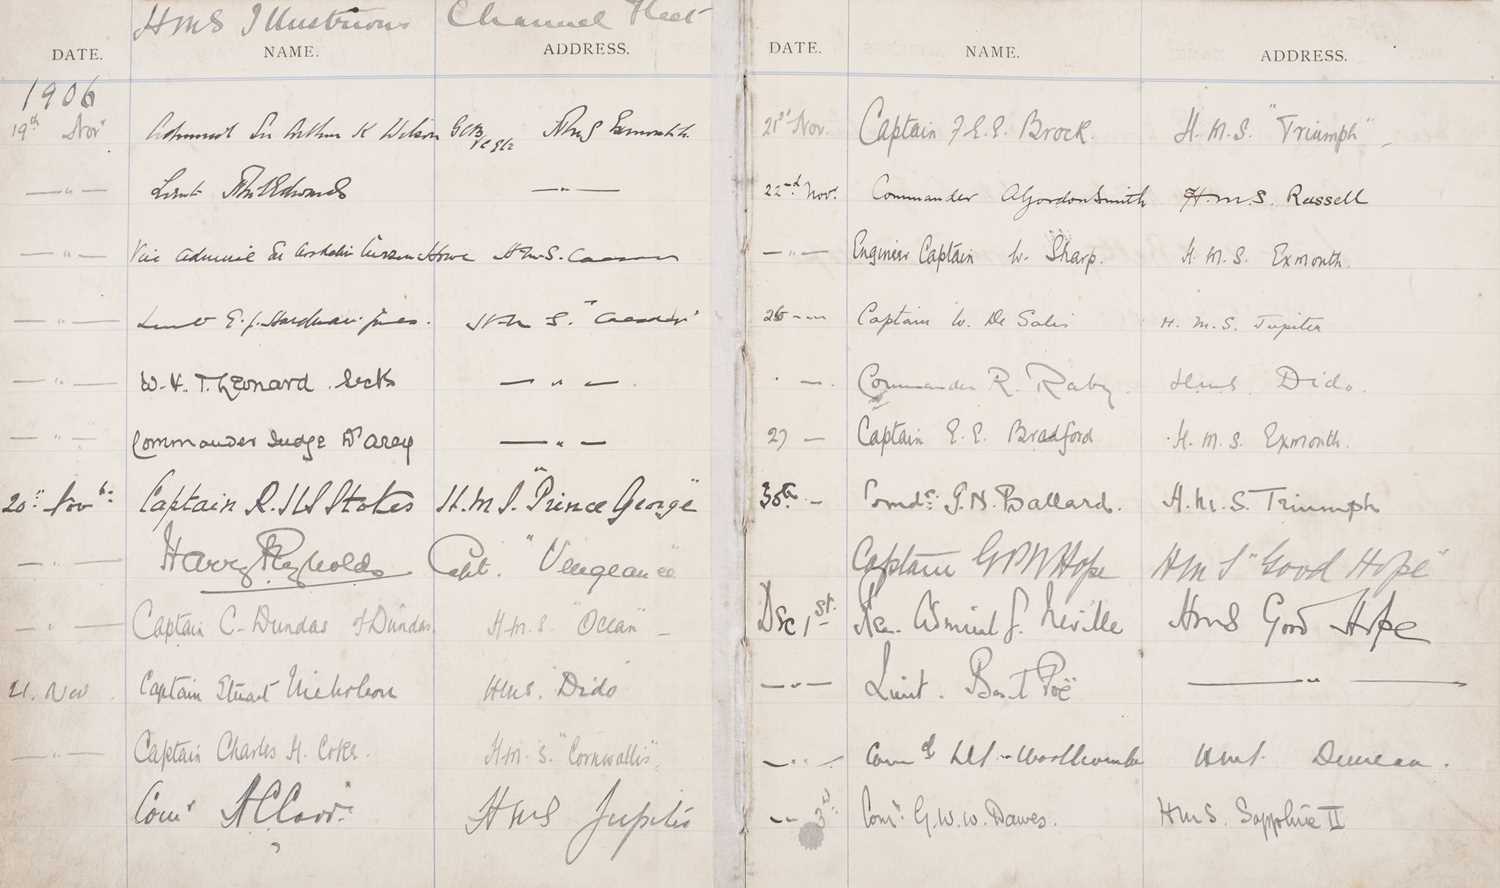 HMS Illustrious Channel Fleet
DATE. NAME. ADDRESS.
1906
19th Novr Admiral Sir Arthur K Wilson GCB VC &c HMS Exmouth
—"— Lieut —"—
—"— Vice Admiral Sir Assheton Curzon Howe H.M.S. Caesar
—"— Lieut E. J. Hardman-Jones. H.M.S. "Caesar"
—"— W. H. T. Leonard. Secty — " —
—"— Commander Judge D'arcy — " —
20th Novbr Captain R. H S Stokes H.M.S. "Prince George"
—"— Harry Reynolds Capt. "Vengeance"
—"— Captain C. Dundas of Dundas. H.M.S. "Ocean" —
21. Nov. Captain Stuart Nicholson HMS. Dido
—"— Captain Charles H. Coke. H.M.S. "Cornwallis".
Comr HMS Jupiter
DATE. NAME. ADDRESS.
21st Nov. Captain F. E. E. Brock. H.M.S. "Triumph"
22nd Nov. Commander A Gordon Smith H.M.S. Russell
—"— Engineer Captain W. Sharp. H.M.S. Exmouth.
26 — Captain W. De Salis H.M.S. Jupiter
" — Commander R. Raby. H.M.S. Dido.
27 — Captain E. E. Bradford H.M.S. Exmouth.
30th — Comdr. G. A. Ballard. H.M.S. Triumph
Captain G P W Hope HMS "Good Hope"
Dec 1st. Rear Admiral G. Neville HMS Good Hope
—"— Lieut. Poë —"—
—"— Comd Woollcombe H.M.S. Duncan.
— 3rd Comr. G. W. W. Dawes. HMS. Sapphire II